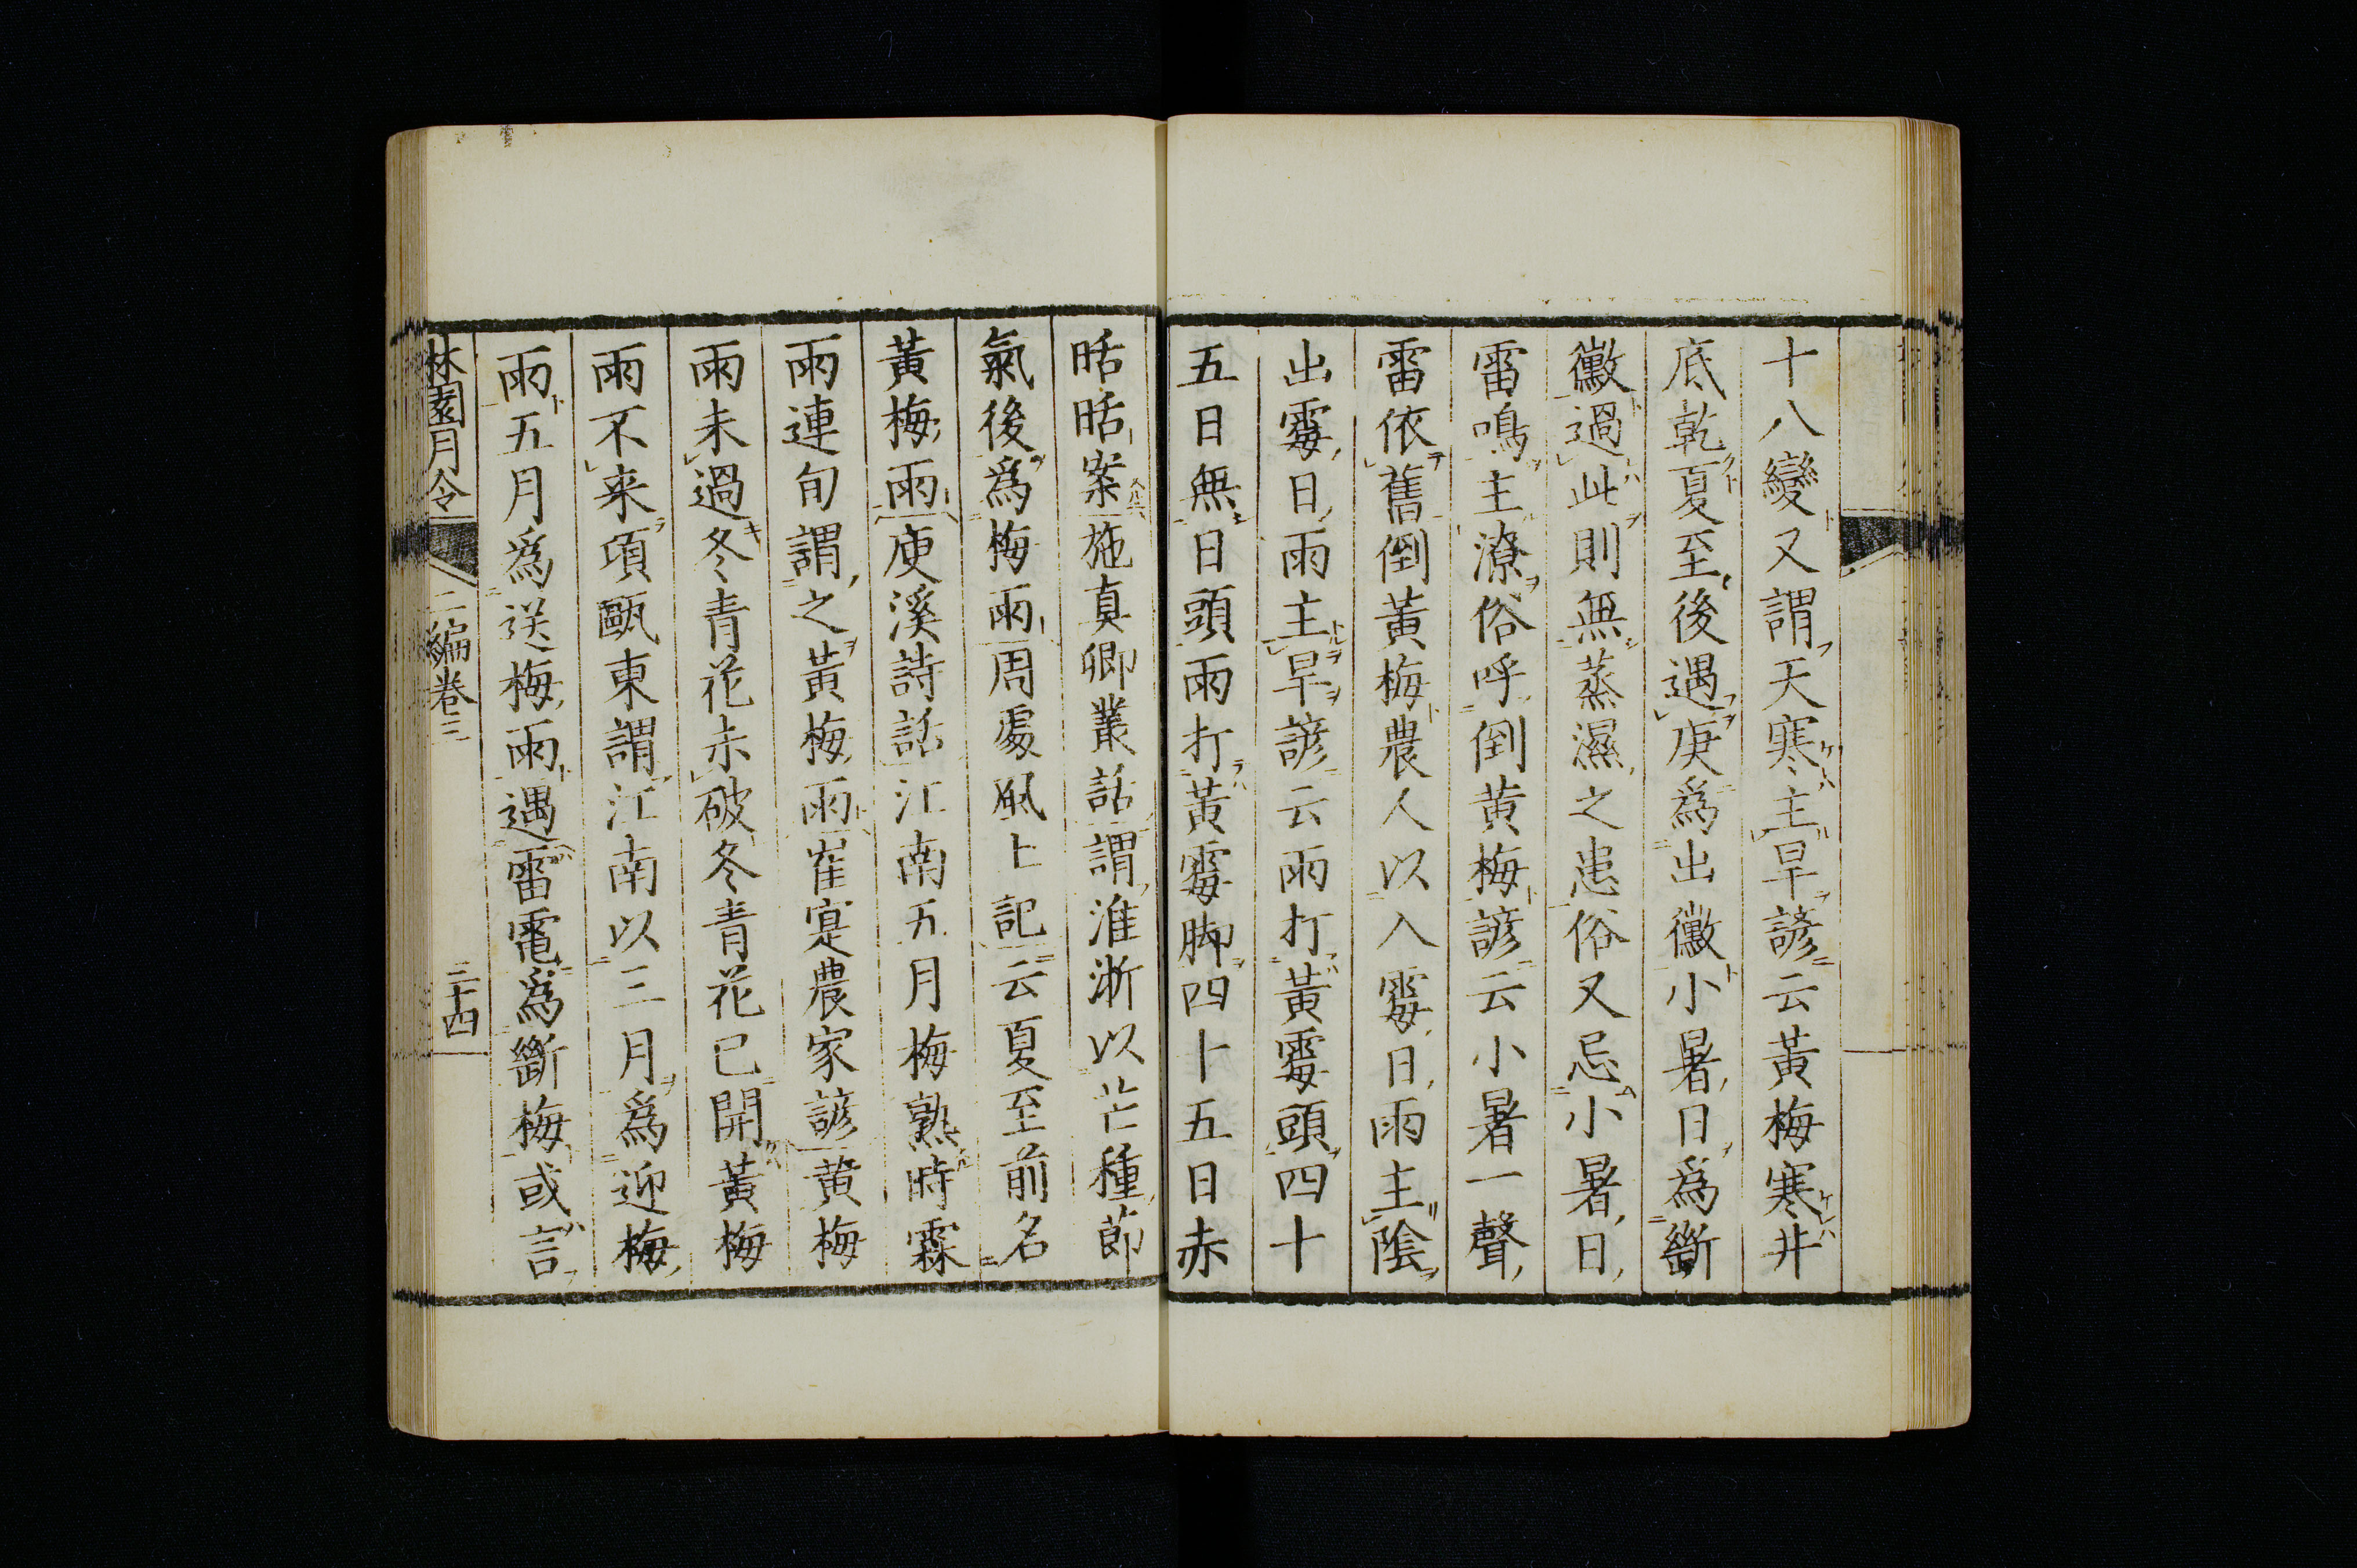 十八變又謂天寒主旱諺云黃梅寒井
底乾夏至後遇庚爲出黴小暑日爲斷
黴過此則無蒸濕之患俗又忌小暑日
雷鳴主潦俗呼倒黄梅諺云小暑一聲
雷依舊倒黄梅農人以入霉日雨主陰
出霉日雨主旱諺云雨打黃霉頭四十
五日無日頭雨打黃霉脚四十五日赤
晤晤案施真卿叢話謂淮浙以芒種節
氣後爲梅雨周處風土記云夏至前名
黃梅雨庚溪詩話江南五月梅熟時霖
雨連旬謂之黃梅雨崔寔農家諺黄梅
雨未過冬青花未破冬青花已開黃梅
雨不来項甌東謂江南以三月爲迎梅
雨五月爲送梅雨遇雷電爲斷梅或言
林園月令
二編卷三
三十四